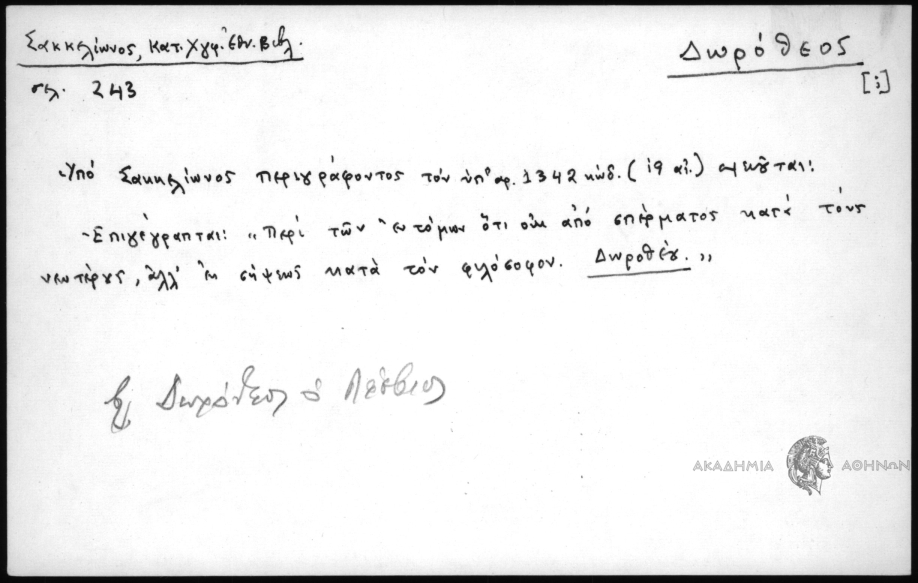 Σακκελίωνος, Κατ. Χγφ. Ἐθν. Βιβλ.
Δωρόθεος
σελ. 243
[;]
Ὑπό Σακκελίωνος περιγράφοντος τόν ὑπ' αρ. 1342 κώδ. (ΙΘ αἰ.) σημειοῦται:
Ἐπιγέγραπται: „Περί τῶν ἐντόμων ὅτι οὐκ ἀπό σπέρματος κατά τούς
νεωτέρους, ἀλλ' ἐκ σήψεως κατά τόν φιλόσοφον. Δωροθέου.„
Δωρόθεος ὁ Λέσβιος
ΑΚΑΔΗΜΙΑ ΑΘΗΝΩΝ